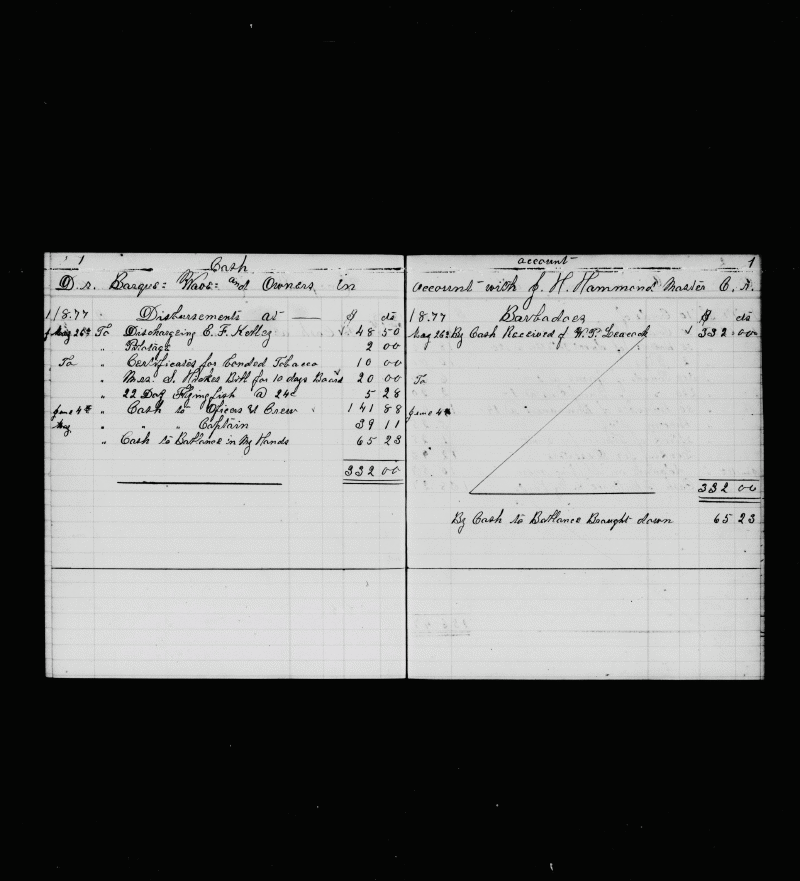 1
Cash
D. r. Barque: Waos: and Owners in
18.77 Disbursements at — $ cts
May 26th To Dischargeing E. F. Kelley 48 50
" Pilotage 2 00
To " Certificates for Bonded Tobacco 10 00
" Mrs. S. Hookes Bill for 10 days Board 20 00
" 22 Doz Flyingfish @ 24c 5 28
June 4th " Cash to Oficers & Crew 141 88
May " " " Captain 39 11
" Cash to Ballance in My Hands 65 23
332 00
account 1
account with J. H. Hammond Master C. R.
18.77 Barbadoes $ cts
May 26th By Cash Received of W. P. Leacock 332 00
To
June 4th
332 00
By Cash to Ballance Braught down 65 23